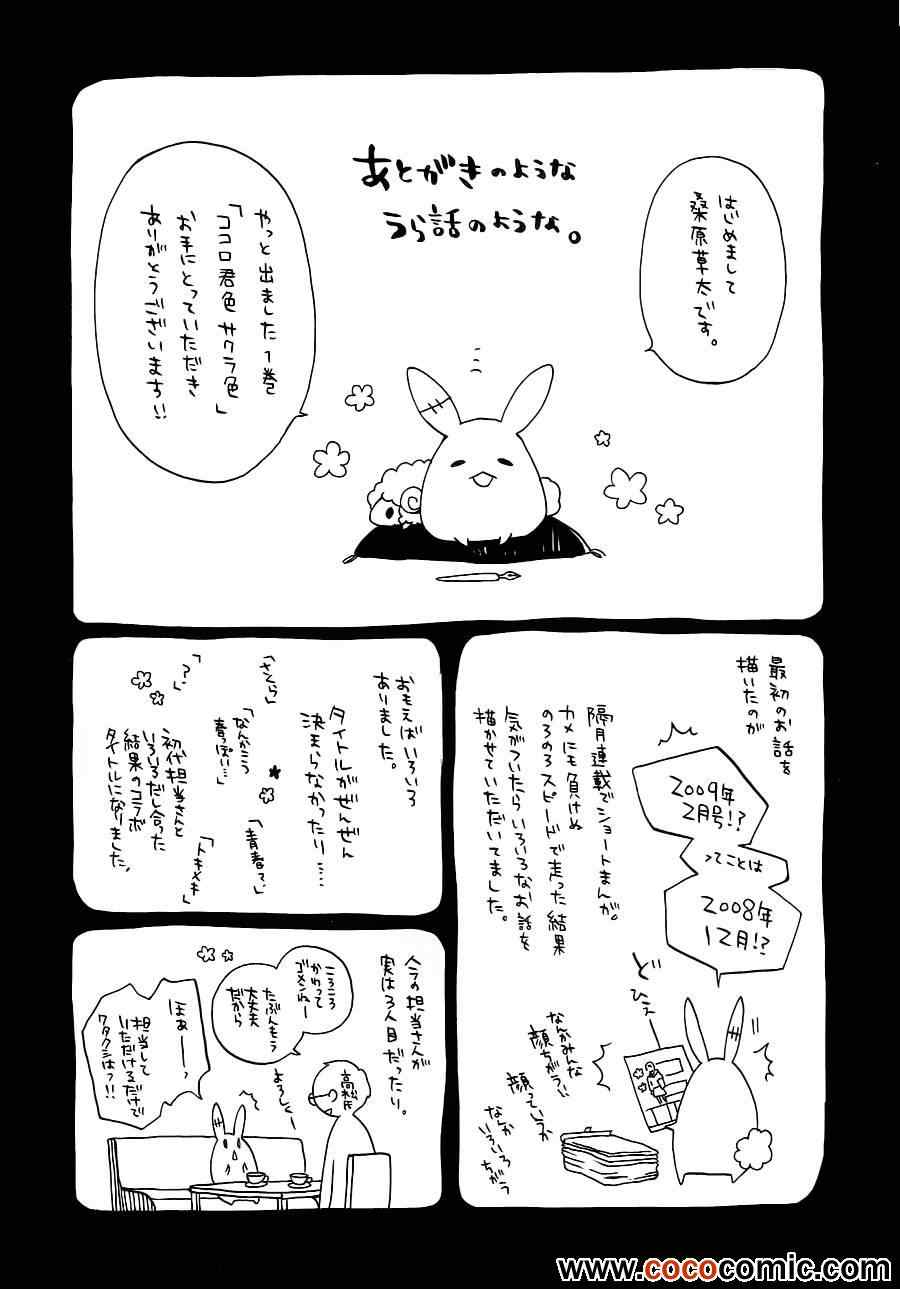 あとがきのような
うら話のような。
はじめまして
桑原草太です。
やっと出ました1巻
「ココロ君色サクラ色」
お手にとっていただき
ありがとうございます!!
最初のお話を
描いたのが
2009年
2月号!?
ってことは
2008年
12月!?
隔月連載でショートまんが。
カメにも負けぬ
のろのろスピードで走った結果
気がついたらいろいろなお話を
描かせていただいてました。
どひぇー
なんかみんな
顔ちがう!!
顔っていうか
なんか
いろいろ
ちがう
おもえばいろいろ
ありました。
タイトルがぜんぜん
決まらなかったり……
「さくら」
「なんかこう
春っぽい…」
「?」
「青春て」
「トキメキ」
初代担当さんと
いろいろだし合った
結果のコラボ
タイトルになりました。
今の担当さんが
実は3人目だったり。
ころころ
かわって
ゴメンねー
たぶんもう
大丈夫
だから
よろしくー
高松氏
ほぁーっ
担当して
いただけるだけで
ワタクシはっ!!
www.cococomic.com